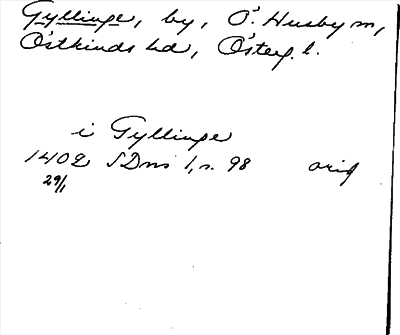 Gyllinge, by, Ö. Husby sn,
Östkinds hd, Österg. l.
i Gyllinge
1402 SDns 1, s. 98 orig
29/1